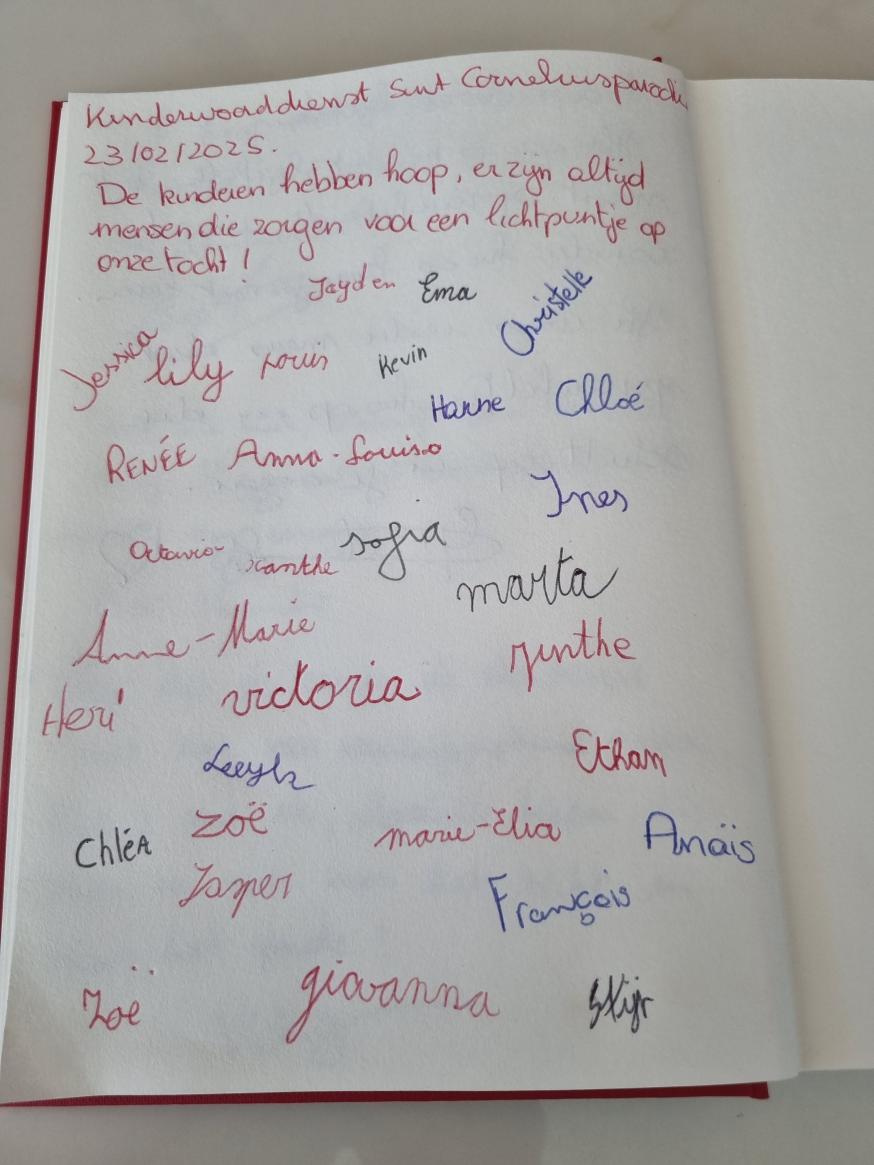 Kinderwoorddienst Sint Corneliusparochi
23/02/2025.
De kinderen hebben hoop, er zijn altijd
mensen die zorgen voor een lichtpuntje op
onze tocht !
Jayden Ema Christelle
Jessica lily Louis Kevin
Hanne Chloé
RENÉE Anna-Louise
Ines
Octavio Xanthe sofia
marta
Anne-Marie Jinthe
Heri victoria
Ethan
Zoë marie-Elia Anaïs
ChléA
Jasper François
Zoë giovanna Stijn